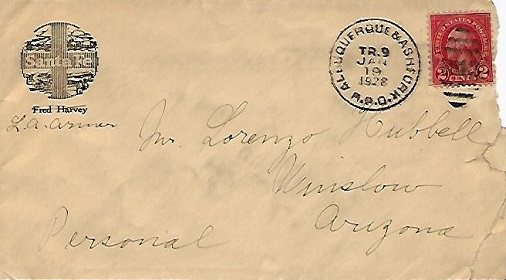 Santa Fe
Fred Harvey
L.A. Armer
ALBUQUERQUE & ASHFORK. R.P.O.
TR.9
JAN
19
1928
UNITED STATES POSTAGE
2 CENTS 2
Mr. Lorenzo Hubbell
Winslow
Arizona
Personal